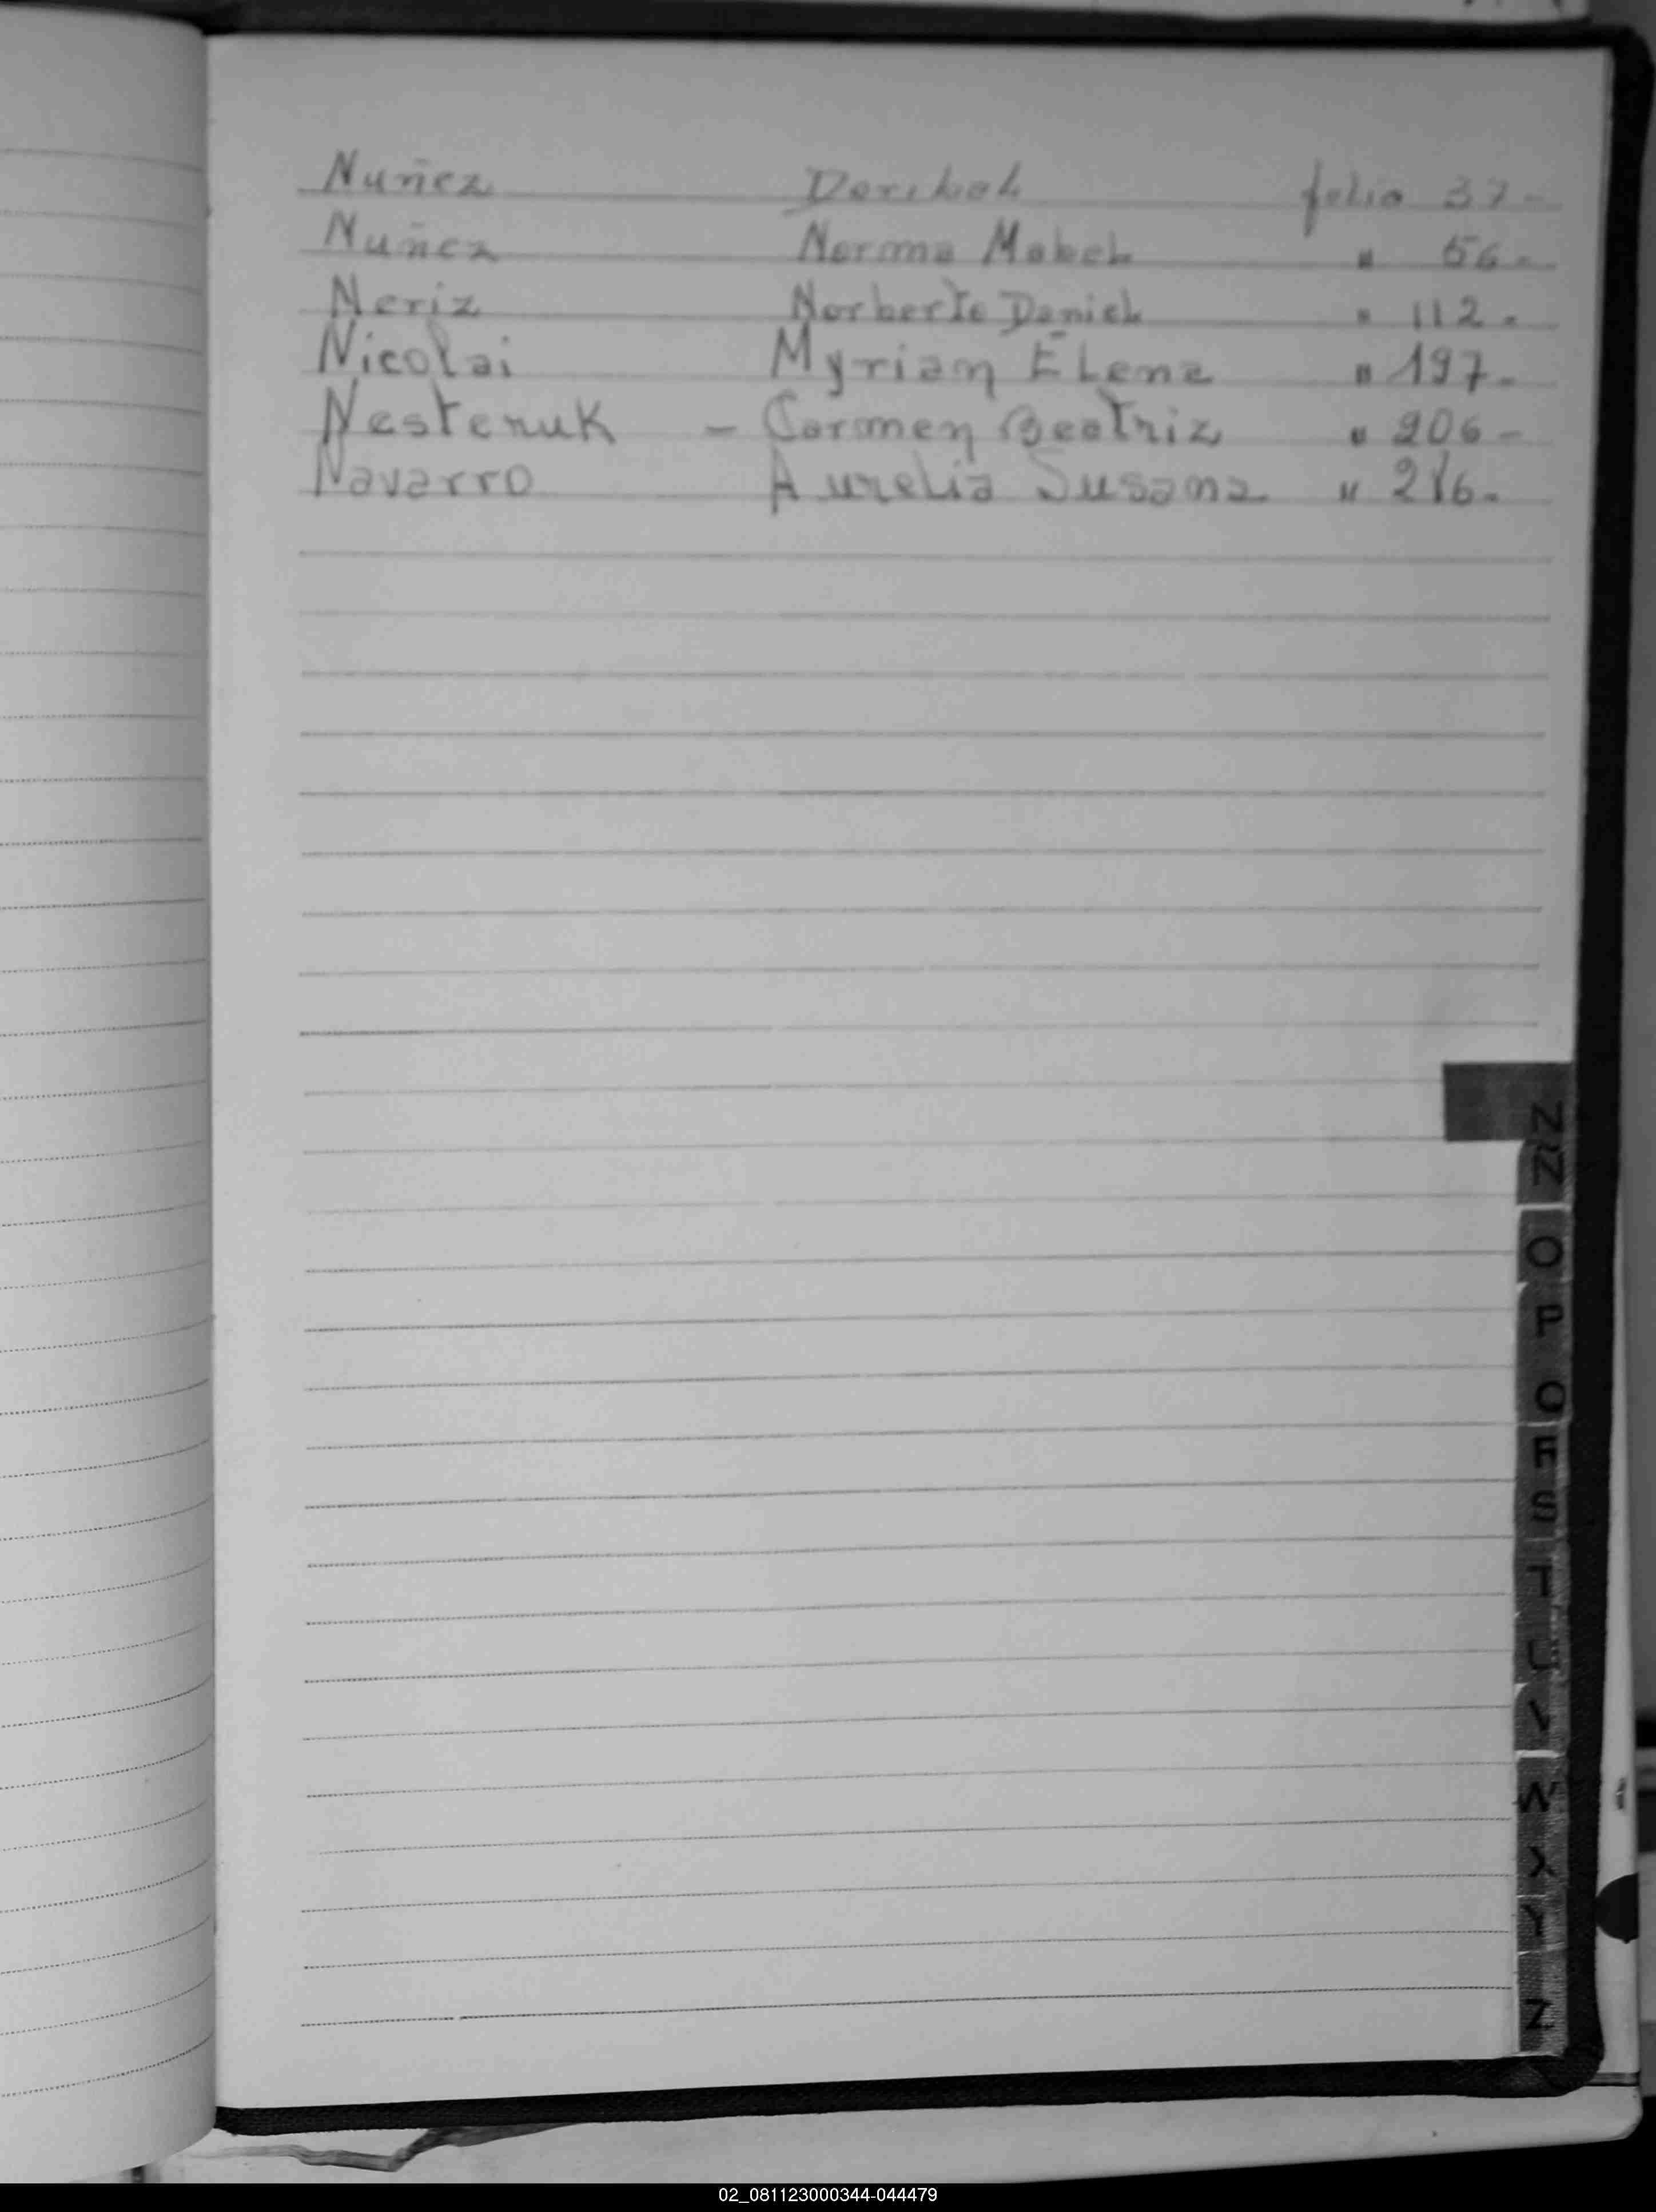 Nuñez Noribal folio 37-
Nuñez Norma Mabel " 56-
Neriz Norberto Daniel " 112-
Nicolai Myriam Elena " 197-
Nestenuk - Carmen Beatriz " 206-
Navarro Aurelia Susana " 216-
N
Ñ
O
P
Q
R
S
T
U
V
W
X
Y
Z
02_081123000344-044479